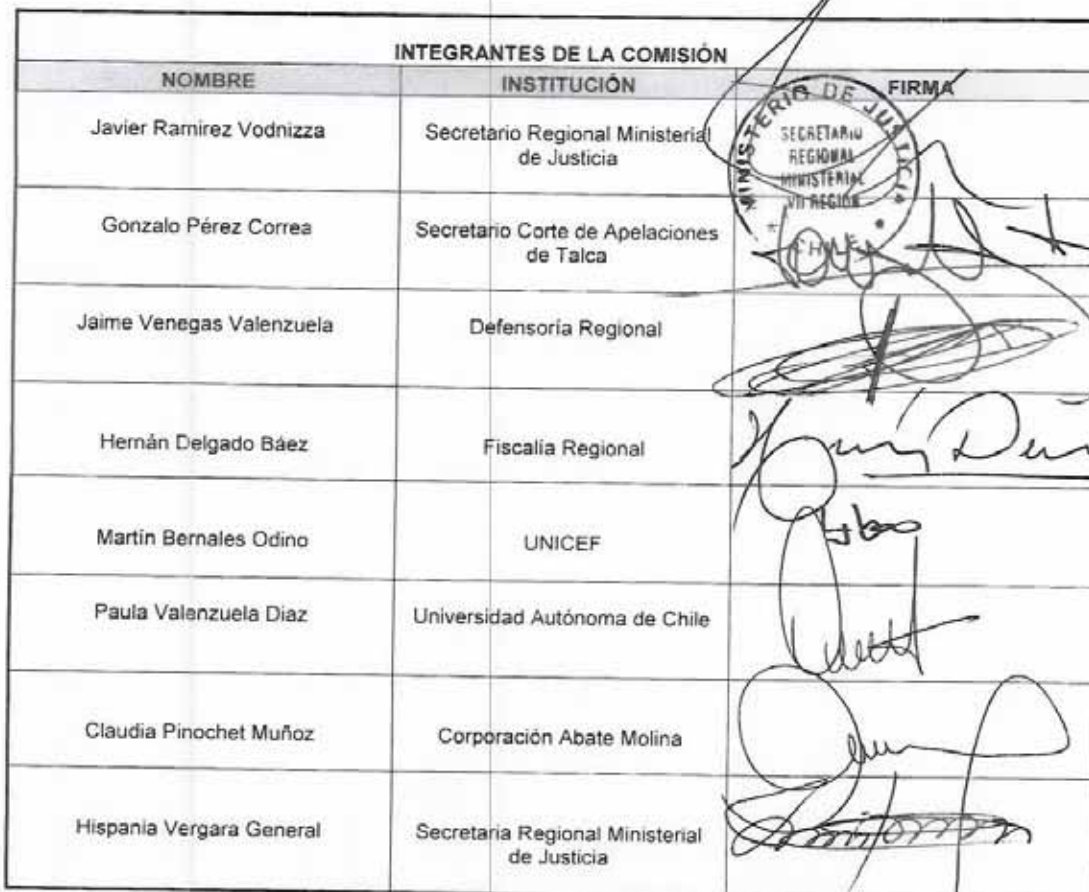 INTEGRANTES DE LA COMISIÓN
NOMBRE INSTITUCIÓN FIRMA
Javier Ramirez Vodnizza Secretario Regional Ministerial
de Justicia
MINISTERIO DE JUSTICIA
SECRETARIO
REGIONAL
MINISTERIAL
VII REGION
* CHILE *
Gonzalo Pérez Correa Secretario Corte de Apelaciones
de Talca
Jaime Venegas Valenzuela Defensoría Regional
Hernán Delgado Báez Fiscalía Regional
Martín Bernales Odino UNICEF
Paula Valenzuela Diaz Universidad Autónoma de Chile
Claudia Pinochet Muñoz Corporación Abate Molina
Hispania Vergara General Secretaria Regional Ministerial
de Justicia